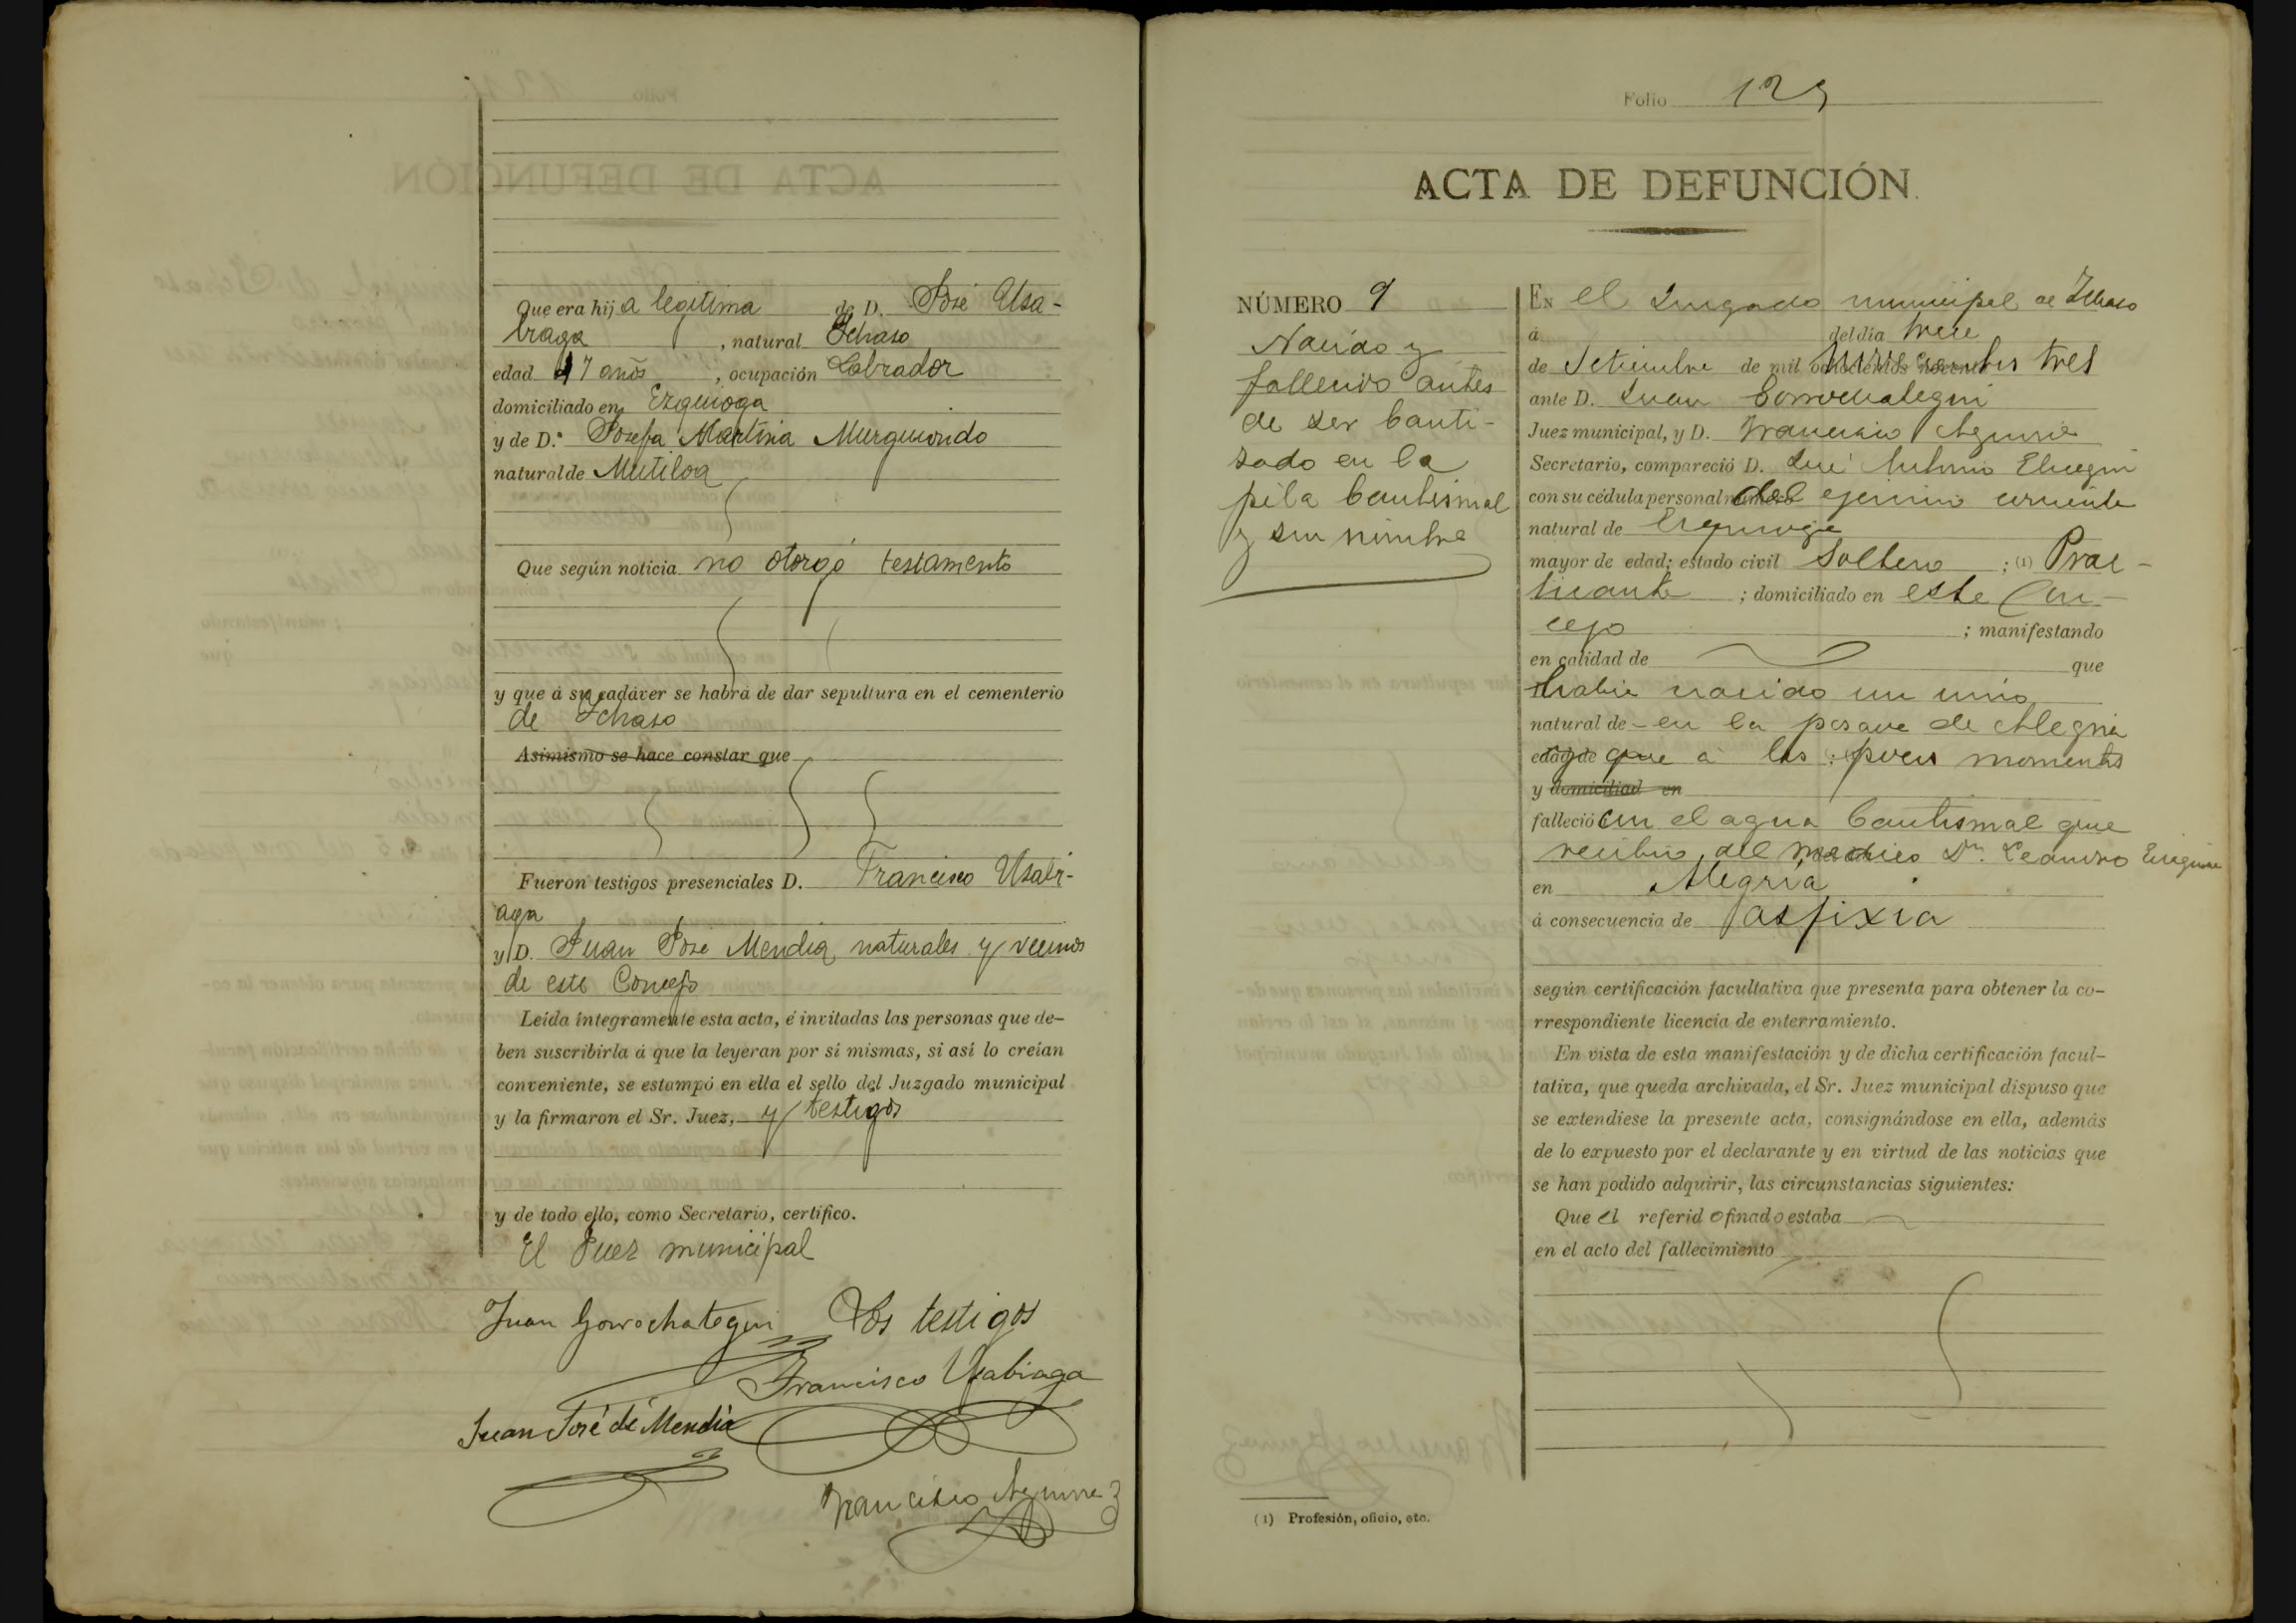 Que era hija legitima de D. José Usa-
biaga, natural Ichaso
edad 47 años, ocupación Labrador
domiciliado en Ezquioga
y de D.ª Josefa Martina Murguiondo
natural de Mutiloa
Que según noticia no otorgó testamento
y que á su cadáver se habrá de dar sepultura en el cementerio
de Ichaso
Asimismo se hace constar que
Fueron testigos presenciales D. Francisco Usabi-
aga
y D. Juan José Mendia naturales y vecinos
de este Concejo
Leída íntegramente esta acta, é invitadas las personas que de-
ben suscribirla á que la leyeran por sí mismas, si así lo creían
conveniente, se estampó en ella el sello del Juzgado municipal
y la firmaron el Sr. Juez, y testigos
y de todo ello, como Secretario, certifico.
El Juez municipal
Juan Gorrochategui Los testigos
Francisco Usabiaga
Juan José de Mendia
Francisco Aguirre
Folio 125
ACTA DE DEFUNCIÓN.
NÚMERO 9
Nacido y
fallecido antes
de ser bauti-
zado en la
pila bautismal
y sin nombre
EN el Juzgado municipal de Ichaso
á del dia trece
de Setiembre de mil novecientos tres
ante D. Juan Gorrochategui
Juez municipal, y D. Francisco Aguirre
Secretario, compareció D. José Antonio
con su cédula personal número del ejercicio corriente
natural de Ezquioga
mayor de edad; estado civil Soltero ; (1) Prac-
ticante ; domiciliado en este Con-
cejo ; manifestando
en calidad de que
había nacido un niño
natural de - en la posada de Alegria
edad de que á los pocos momentos
y domiciliad en
falleció con el agua bautismal que
recibió del medico Dn. Leandro
en Alegría
á consecuencia de asfixia
según certificación facultativa que presenta para obtener la co-
rrespondiente licencia de enterramiento.
En vista de esta manifestación y de dicha certificación facul-
tativa, que queda archivada, el Sr. Juez municipal dispuso que
se extendiese la presente acta, consignándose en ella, además
de lo expuesto por el declarante y en virtud de las noticias que
se han podido adquirir, las circunstancias siguientes:
Que el referido finado estaba
en el acto del fallecimiento
(1) Profesión, oficio, etc.